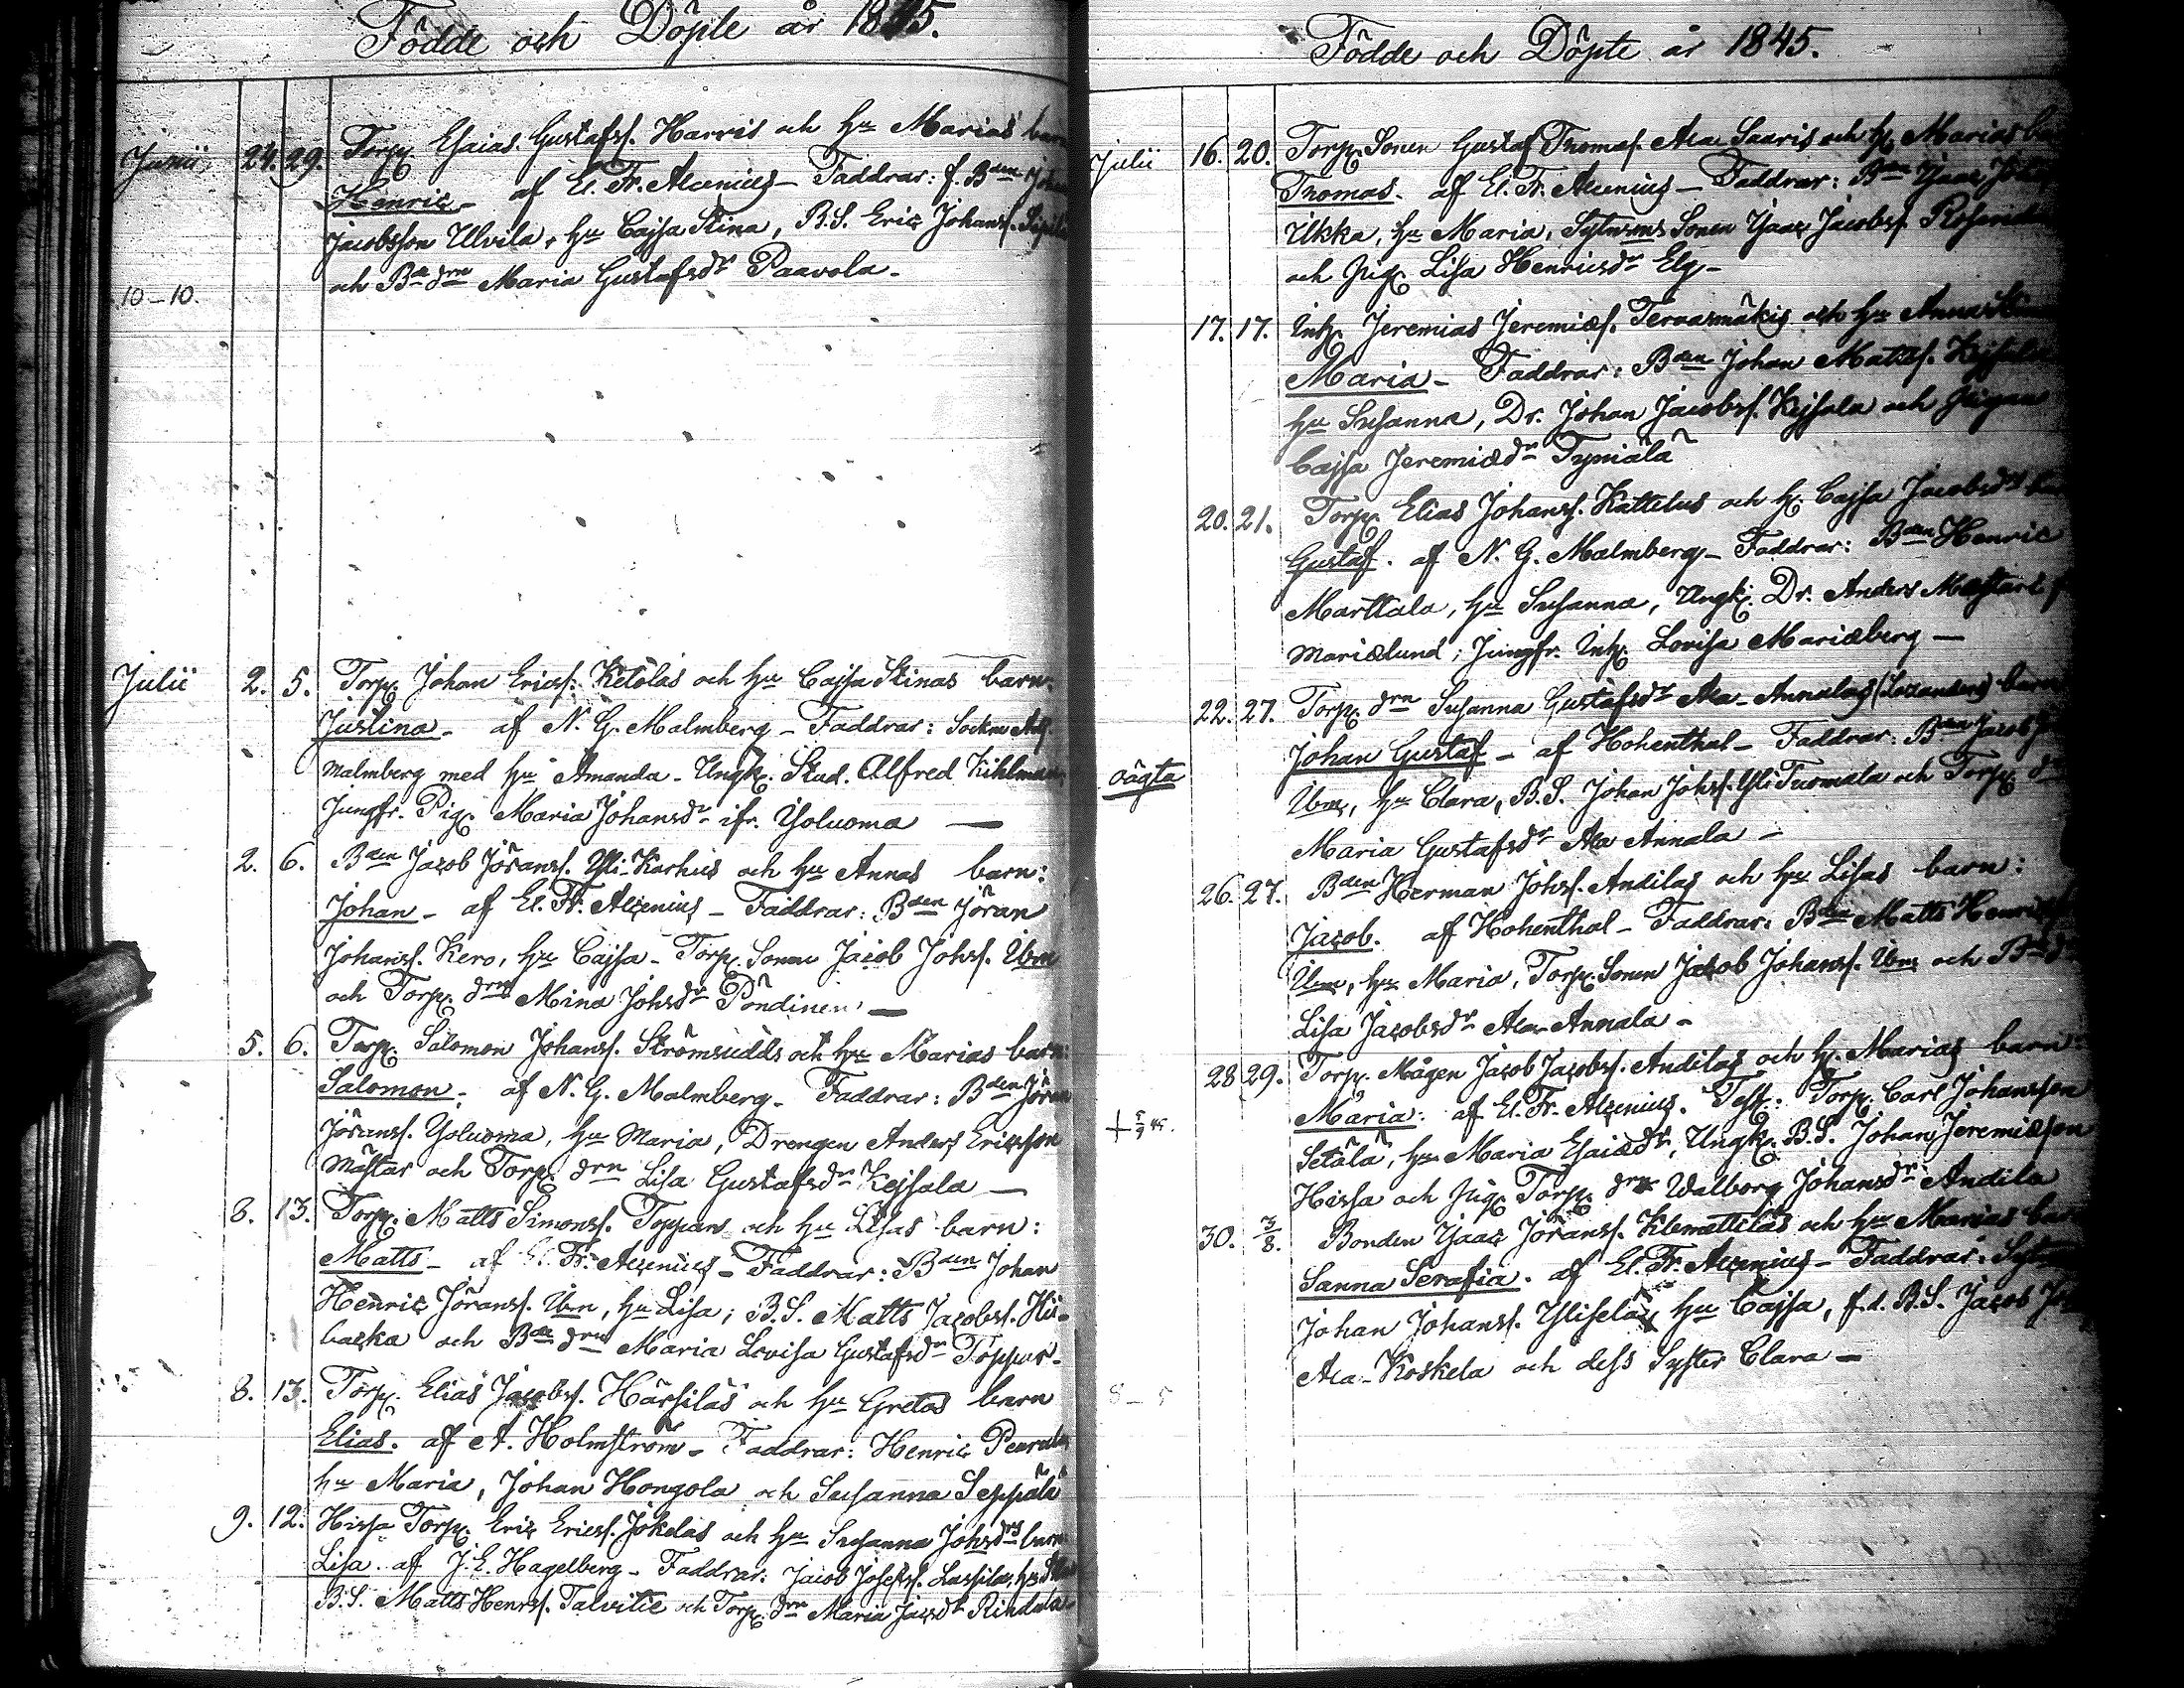 Födde och Döpte år 1845.
Junii 24. 29. Torp. Esaias Gustafss. Harris och hu Marias barn
Henric - af El. Fr. Alcenius - Faddrar: f. Bden Johan
Jacobsson Ulvila, hu Cajsa Stina, B.S. Eric Johanss. Sipilä
och Bde drn Maria Gustafsdr Paavola -
10-10.
Julii 2. 5. Torp. Johan Ericss. Ketolas och hu Cajsa Stinas barn:
Justina - af N. G. Malmberg - Faddrar: Sockne Adj.
Malmberg med hu Amanda - Ungk. Stud. Alfred Kihlman,
Jungfr. Pig. Maria Johansdr ifr. Yoluoma —
2. 6. Bden Jacob Jöranss. Yli-Karhus och hu Annas barn:
Johan - af El. Fr. Alcenius - Faddrar: Bden Jöran
Johanss. Kero, hu Cajsa - Torp. Sonen Jacob Johss. Ibm
och Torp. drn Mina Johsdr Pöndinen —
5. 6. Torp. Salomon Johanss. Strömsudds och hu Marias barn:
Salomon - af N. G. Malmberg - Faddrar: Bden Jöran
Jöranss. Yoluoma, hu Maria, Drengen Anders Ericsson
Mästar och Torp. drn Lisa Gustafsdr Kejsala —
8. 13. Torp. Matts Simonss. Toppars och hu Lisas barn:
Matts - af El. Fr. Alcenius - Faddrar: Bden Johan
Henric Jöranss. Ibm, hu Lisa; B.S. Matts Jacobss. Hii-
backa och Bde drn Maria Lovisa Gustafsdr Toppar -
8. 13. Torp. Elias Jacobss. Härsiläs och hu Gretas barn
Elias. af A. Holmström - Faddrar: Henric Peurala,
hu Maria, Johan Hongola och Susanna Seppälä
9. 12. Hissa Torp. Eric Ericss. Jokelas och hu Susanna Johsdrs barn
Lisa. af J. E. Hagelberg - Faddrar: Jacob Josefss. Lassila, hu
B.S. Matts Henrss. Talvitie och Torp. drn Maria Jacsdr Rindala -
Födde och Döpte år 1845.
Julii 16. 20. Torp. Sonen Gustaf Thomass. Ala Saaris och h. Marias barn
Thomas - af El. Fr. Alcenius - Faddrar: Bden Isaac
Ilkka, hu Maria, Sytnms Sonen Isaac Jacobss.
och Pig. Lisa Henricsdr Elg -
17. 17. Inh. Jeremias Jeremiæs. Tervasmäkis och hu Anna
Maria - Faddrar: Bden Johan Mattss. Kejsala
hu Susanna, Dr. Johan Jacobss. Kejsala och Pigan
Cajsa Jeremiædr Tyniälä
20. 21. Torp. Elias Johanss. Kattelus och h. Cajsa Jacobsdrs
Gustaf. af N. G. Malmberg - Faddrar: Bden Henric
Marttala, hu Susanna, Ungk. Dr. Anders
Mariælund; Jungfr. Inh. Lovisa Mariæberg —
22. 27. Torp. drn Susanna Gustafsdr Ala-Annalas barn
Johan Gustaf - af Hohenthal - Faddrar: Bden Jacob
oägta
Ibm, hu Clara, B.S. Johan Johss. Yli Tuomala och Torp. d
Maria Gustafsdr Ala Annala -
26. 27. Bden Herman Johss. Andilas och hu Lisas barn:
Jacob. af Hohenthal - Faddrar: Bden Matts
Ibm, hu Maria, Torp. Sonen Jacob Johanss. Ibm och Bde d
Lisa Jacobsdr Ala-Annala -
28 29. Torp. Mågen Jacob Jacobss. Andilas och h. Marias barn
Maria: af El. Fr. Alcenius. Test.: Torp. Carl Johansson
+ 5/9 45.
Setälä, hu Maria Esaiædr, Ungk. B.S. Johan Jeremiæson
Hissa och Pig. Torp. drn Walborg Johansdr Andila
30. 3/8. Bonden Isaac Jöranss. Klemettiläs och hu Marias barn
Sanna Serafia. af El. Fr. Alcenius - Faddrar:
Johan Johanss. Ylisela, hu Cajsa, f.d. B.S. Jacob
Ala-Koskela och dess Syster Clara —
8-5